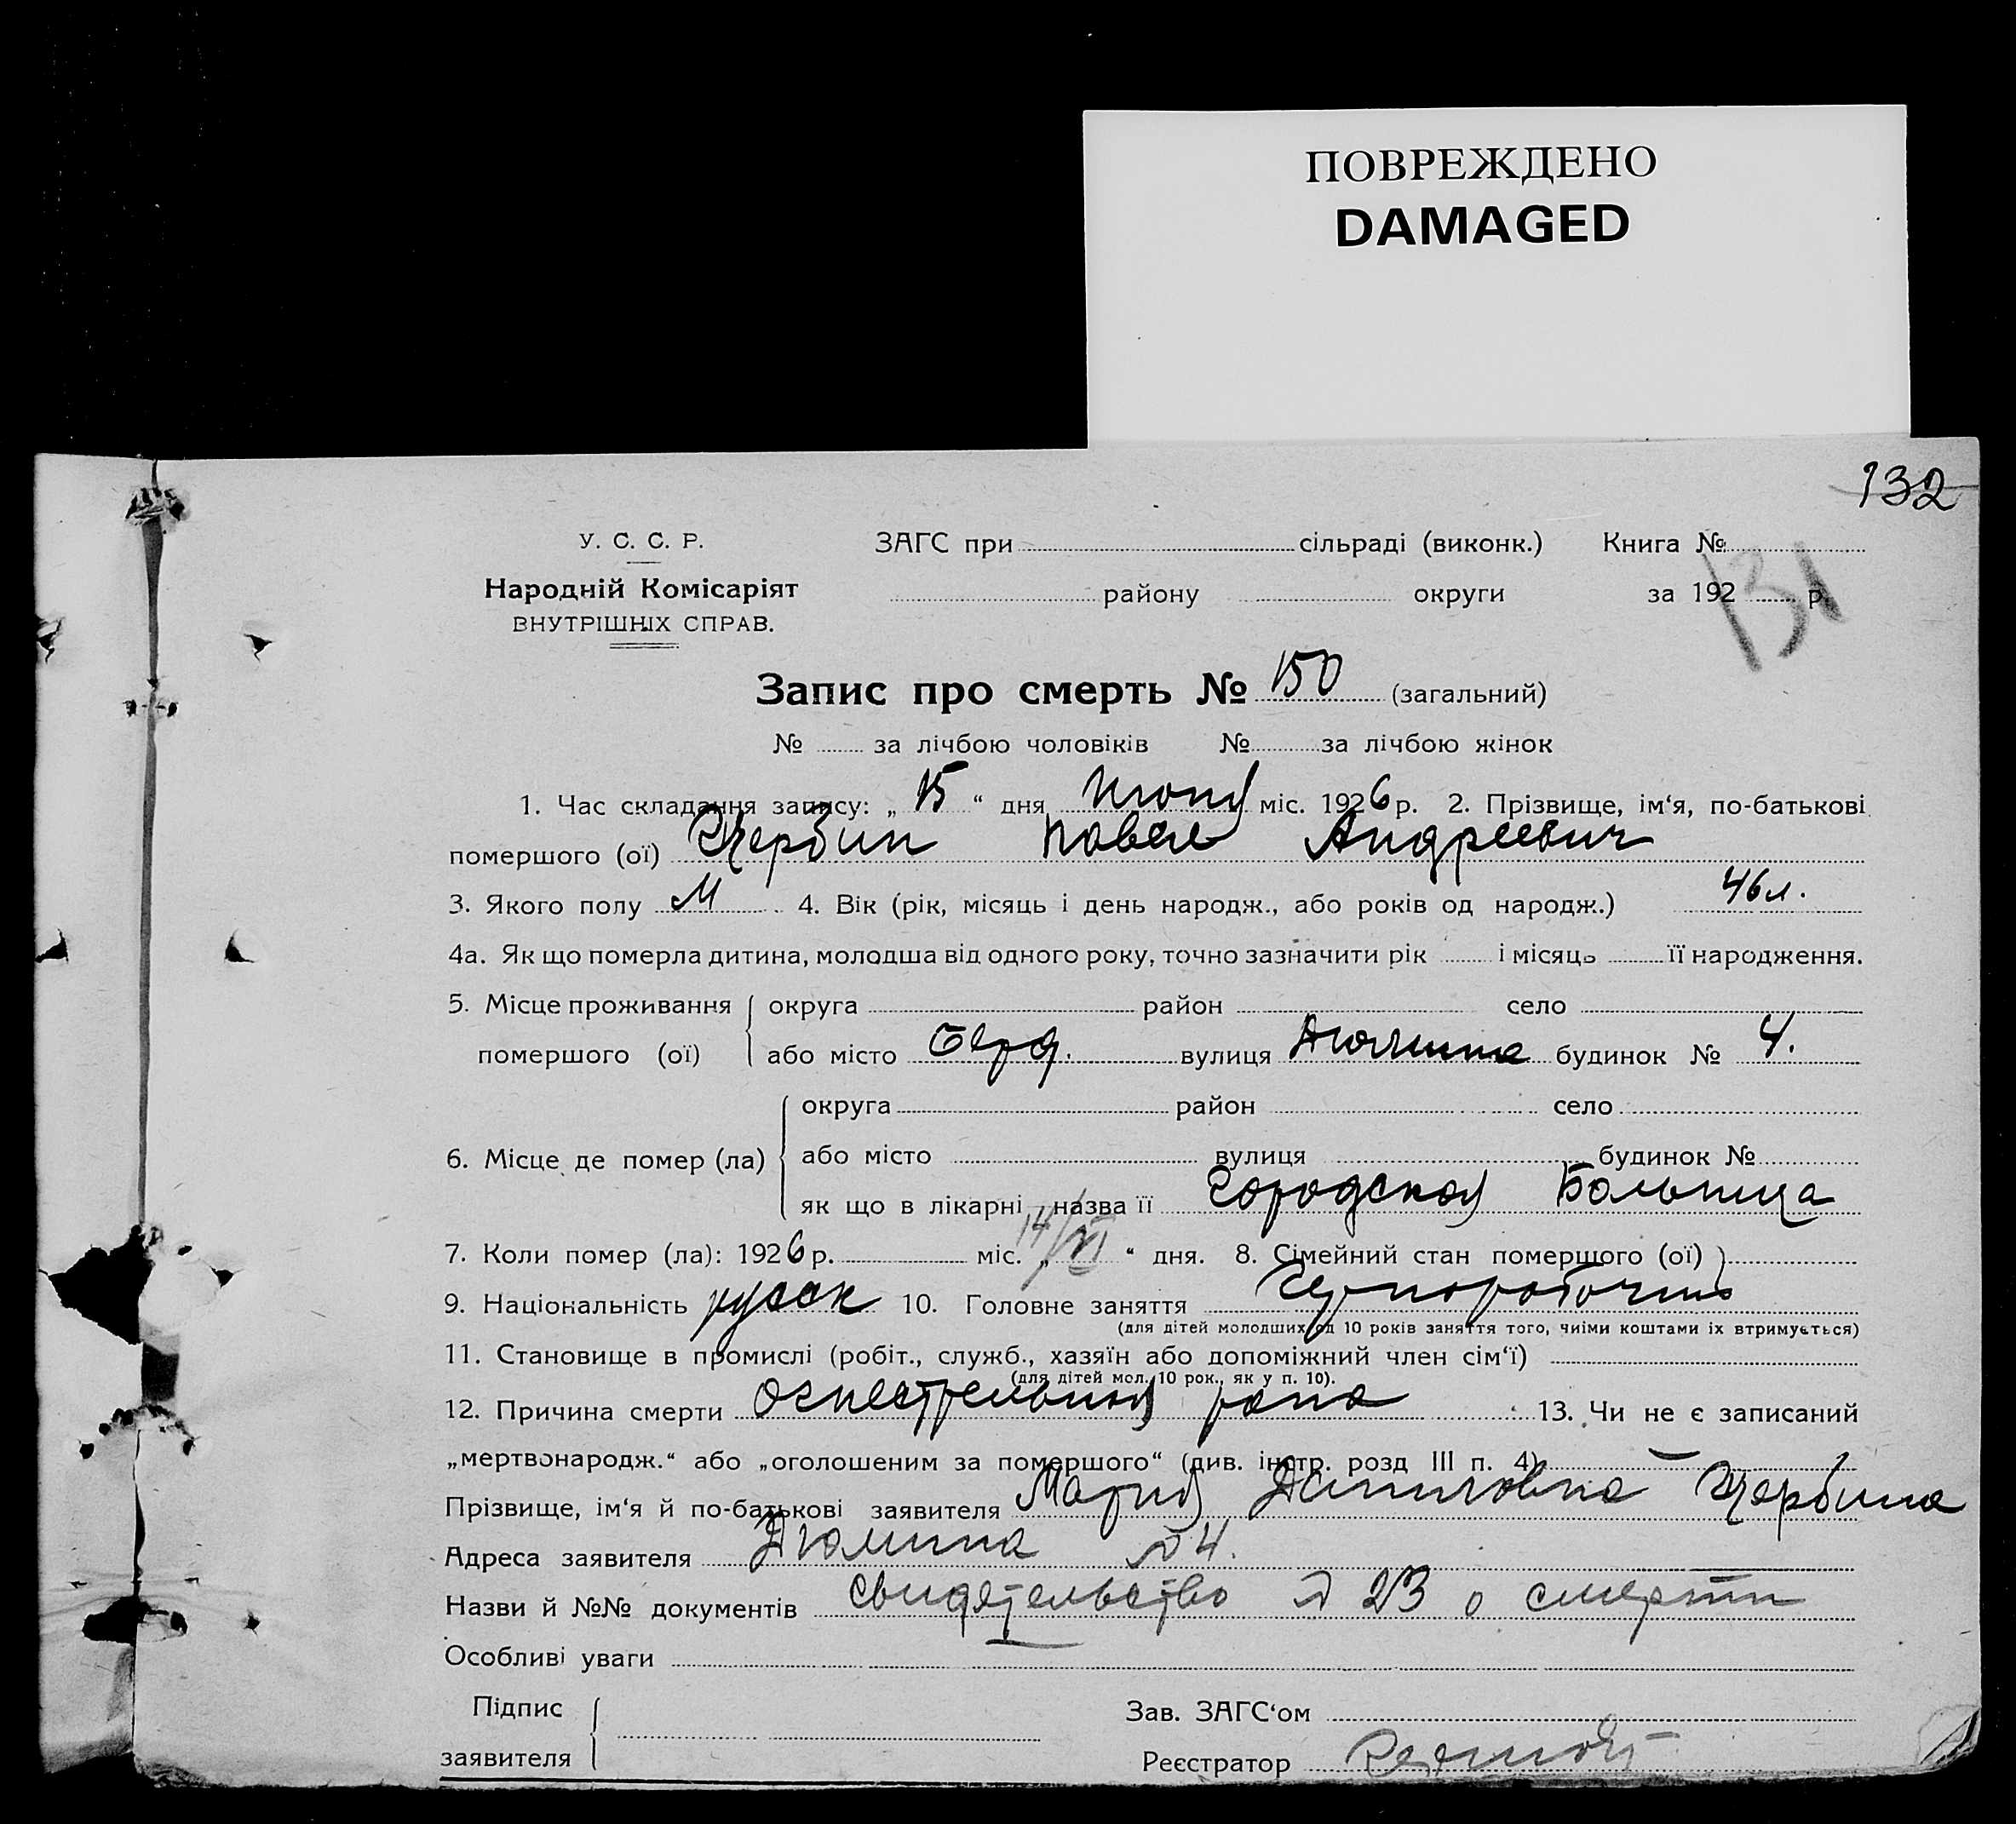 ПОВРЕЖДЕНО
DAMAGED
132
У. С. С. Р.
ЗАГС при сільраді (виконк.) Книга №
131
Народній Комісаріят
району округи за 192 р.
ВНУТРІШНІХ СПРАВ.
Запис про смерть № 150 (загальний)
№ за лічбою чоловіків № за лічбою жінок
1. Час складання запису: „ 15 “ дня Июня міс. 1926 р. 2. Прізвище, ім‘я, по-батькові
помершого (ої) Щербин Павел Андреевич
3. Якого полу М 4. Вік (рік, місяць і день народж., або років од народж.) 46 л.
4а. Як що померла дитина, молодша від одного року, точно зазначити рік і місяць її народження.
5. Місце проживання округа район село
помершого (ої) або місто Берд. вулиця Дюмина будинок № 4.
округа район село
6. Місце де помер (ла) або місто вулиця будинок №
як що в лікарні, назва її Городская Больница
7. Коли помер (ла): 1926 р. міс. „ 14/VI “ дня. 8. Сімейний стан помершого (ої)
9. Національність русск 10. Головне заняття Чернорабочий
(для дітей молодших од 10 років заняття того, чиїми коштами їх втримується)
11. Становище в промислі (робіт., служб., хазяїн або допоміжний член сім‘ї)
(для дітей мол. 10 рок., як у п. 10).
12. Причина смерти огнестрельная рана 13. Чи не є записаний
„мертвонародж.“ або „оголошеним за помершого“ (див. інстр. розд III п. 4)
Прізвище, ім‘я й по-батькові заявителя Мария Даниловна Щербина
Адреса заявителя Дюмина № 4.
Назви й №№ документів свидетельство № 213 о смерти
Особливі уваги
Підпис
Зав. ЗАГС‘ом
заявителя
Реєстратор